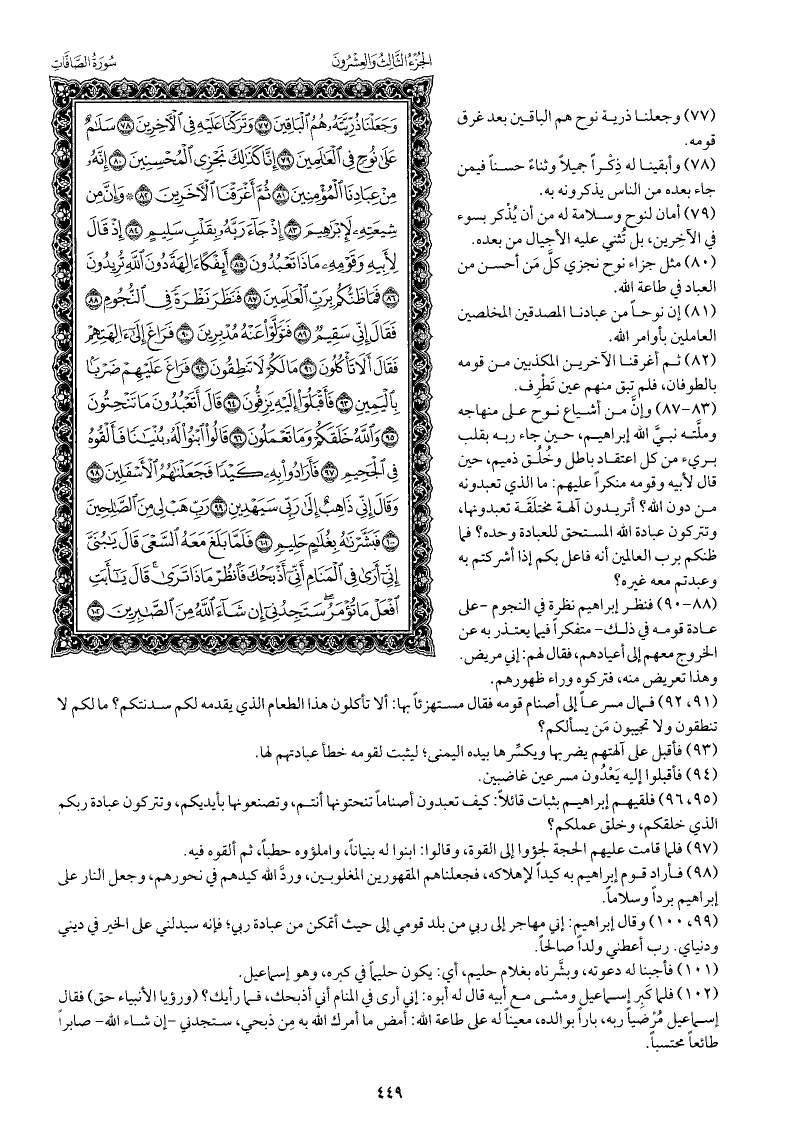 الجزء الثالث والعشرون
سورة الصافات
وَجَعَلْنَا ذُرِّيَّتَهُۥ هُمُ ٱلْبَاقِينَ ٧٧ وَتَرَكْنَا عَلَيْهِ فِى ٱلْءَاخِرِينَ ٧٨ سَلَٰمٌ
عَلَىٰ نُوحٍ فِى ٱلْعَٰلَمِينَ ٧٩ إِنَّا كَذَٰلِكَ نَجْزِى ٱلْمُحْسِنِينَ ٨٠ إِنَّهُۥ
مِنْ عِبَادِنَا ٱلْمُؤْمِنِينَ ٨١ ثُمَّ أَغْرَقْنَا ٱلْءَاخَرِينَ ٨٢ ۞ وَإِنَّ مِن
شِيعَتِهِۦ لَإِبْرَٰهِيمَ ٨٣ إِذْ جَآءَ رَبَّهُۥ بِقَلْبٍ سَلِيمٍ ٨٤ إِذْ قَالَ
لِأَبِيهِ وَقَوْمِهِۦ مَاذَا تَعْبُدُونَ ٨٥ أَئِفْكًا ءَالِهَةً دُونَ ٱللَّهِ تُرِيدُونَ
٨٦ فَمَا ظَنُّكُم بِرَبِّ ٱلْعَٰلَمِينَ ٨٧ فَنَظَرَ نَظْرَةً فِى ٱلنُّجُومِ ٨٨
فَقَالَ إِنِّى سَقِيمٌ ٨٩ فَتَوَلَّوْا۟ عَنْهُ مُدْبِرِينَ ٩٠ فَرَاغَ إِلَىٰٓ ءَالِهَتِهِمْ
فَقَالَ أَلَا تَأْكُلُونَ ٩١ مَا لَكُمْ لَا تَنطِقُونَ ٩٢ فَرَاغَ عَلَيْهِمْ ضَرْبًۢا
بِٱلْيَمِينِ ٩٣ فَأَقْبَلُوٓا۟ إِلَيْهِ يَزِفُّونَ ٩٤ قَالَ أَتَعْبُدُونَ مَا تَنْحِتُونَ
٩٥ وَٱللَّهُ خَلَقَكُمْ وَمَا تَعْمَلُونَ ٩٦ قَالُوا۟ ٱبْنُوا۟ لَهُۥ بُنْيَٰنًا فَأَلْقُوهُ
فِى ٱلْجَحِيمِ ٩٧ فَأَرَادُوا۟ بِهِۦ كَيْدًا فَجَعَلْنَٰهُمُ ٱلْأَسْفَلِينَ ٩٨
وَقَالَ إِنِّى ذَاهِبٌ إِلَىٰ رَبِّى سَيَهْدِينِ ٩٩ رَبِّ هَبْ لِى مِنَ ٱلصَّٰلِحِينَ
١٠٠ فَبَشَّرْنَٰهُ بِغُلَٰمٍ حَلِيمٍ ١٠١ فَلَمَّا بَلَغَ مَعَهُ ٱلسَّعْىَ قَالَ يَٰبُنَىَّ
إِنِّىٓ أَرَىٰ فِى ٱلْمَنَامِ أَنِّىٓ أَذْبَحُكَ فَٱنظُرْ مَاذَا تَرَىٰ ۚ قَالَ يَٰٓأَبَتِ
ٱفْعَلْ مَا تُؤْمَرُ ۖ سَتَجِدُنِىٓ إِن شَآءَ ٱللَّهُ مِنَ ٱلصَّٰبِرِينَ ١٠٢
(٧٧) وجعلنا ذرية نوح هم الباقين بعد غرق
قومه.
(٧٨) وأبقينا له ذِكْراً جميلاً وثناءً حسناً فيمن
جاء بعده من الناس يذكرونه به.
(٧٩) أمان لنوح وسلامة له من أن يُذْكر بسوء
في الآخِرين، بل تُثني عليه الأجيال من بعده.
(٨٠) مثل جزاء نوح نجزي كلَّ مَن أحسن من
العباد في طاعة الله.
(٨١) إن نوحاً من عبادنا المصدقين المخلصين
العاملين بأوامر الله.
(٨٢) ثم أغرقنا الآخرين المكذبين من قومه
بالطوفان، فلم تبق منهم عين تَطْرِف.
(٨٣-٨٧) وإنَّ من أشياع نوح على منهاجه
وملَّته نبيَّ الله إبراهيم، حين جاء ربه بقلب
بريء من كل اعتقاد باطل وخُلُق ذميم، حين
قال لأبيه وقومه منكراً عليهم: ما الذي تعبدونه
من دون الله؟ أتريدون آلهة مختلَقَة تعبدونها،
وتتركون عبادة الله المستحق للعبادة وحده؟ فما
ظنكم برب العالمين أنه فاعل بكم إذا أشركتم به
وعبدتم معه غيره؟
(٨٨-٩٠) فنظر إبراهيم نظرة في النجوم -على
عادة قومه في ذلك- متفكراً فيما يعتذر به عن
الخروج معهم إلى أعيادهم، فقال لهم: إني مريض.
وهذا تعريض منه، فتركوه وراء ظهورهم.
(٩١، ٩٢) فمال مسرعاً إلى أصنام قومه فقال مستهزئاً بها: ألا تأكلون هذا الطعام الذي يقدمه لكم سدنتكم؟ ما لكم لا
تنطقون ولا تجيبون مَن يسألكم؟
(٩٣) فأقبل على آلهتهم يضربها ويكسِّرها بيده اليمنى؛ ليثبت لقومه خطأ عبادتهم لها.
(٩٤) فأقبلوا إليه يَعْدُون مسرعين غاضبين.
(٩٥، ٩٦) فلقيهم إبراهيم بثبات قائلاً: كيف تعبدون أصناماً تنحتونها أنتم، وتصنعونها بأيديكم، وتتركون عبادة ربكم
الذي خلقكم، وخلق عملكم؟
(٩٧) فلما قامت عليهم الحجة لجؤوا إلى القوة، وقالوا: ابنوا له بنياناً، واملؤوه حطباً، ثم ألقوه فيه.
(٩٨) فأراد قوم إبراهيم به كيداً لإهلاكه، فجعلناهم المقهورين المغلوبين، وردَّ الله كيدهم في نحورهم، وجعل النار على
إبراهيم برداً وسلاماً.
(٩٩، ١٠٠) وقال إبراهيم: إني مهاجر إلى ربي من بلد قومي إلى حيث أتمكن من عبادة ربي؛ فإنه سيدلني على الخير في ديني
ودنياي. رب أعطني ولداً صالحاً.
(١٠١) فأجبنا له دعوته، وبشَّرناه بغلام حليم، أي: يكون حليماً في كبره، وهو إسماعيل.
(١٠٢) فلما كَبِر إسماعيل ومشى مع أبيه قال له أبوه: إني أرى في المنام أني أذبحك، فما رأيك؟ (ورؤيا الأنبياء حق) فقال
إسماعيل مُرْضياً ربه، باراً بوالده، معيناً له على طاعة الله: أمض ما أمرك الله به مِن ذبحي، ستجدني -إن شاء الله- صابراً
طائعاً محتسباً.
٤٤٩